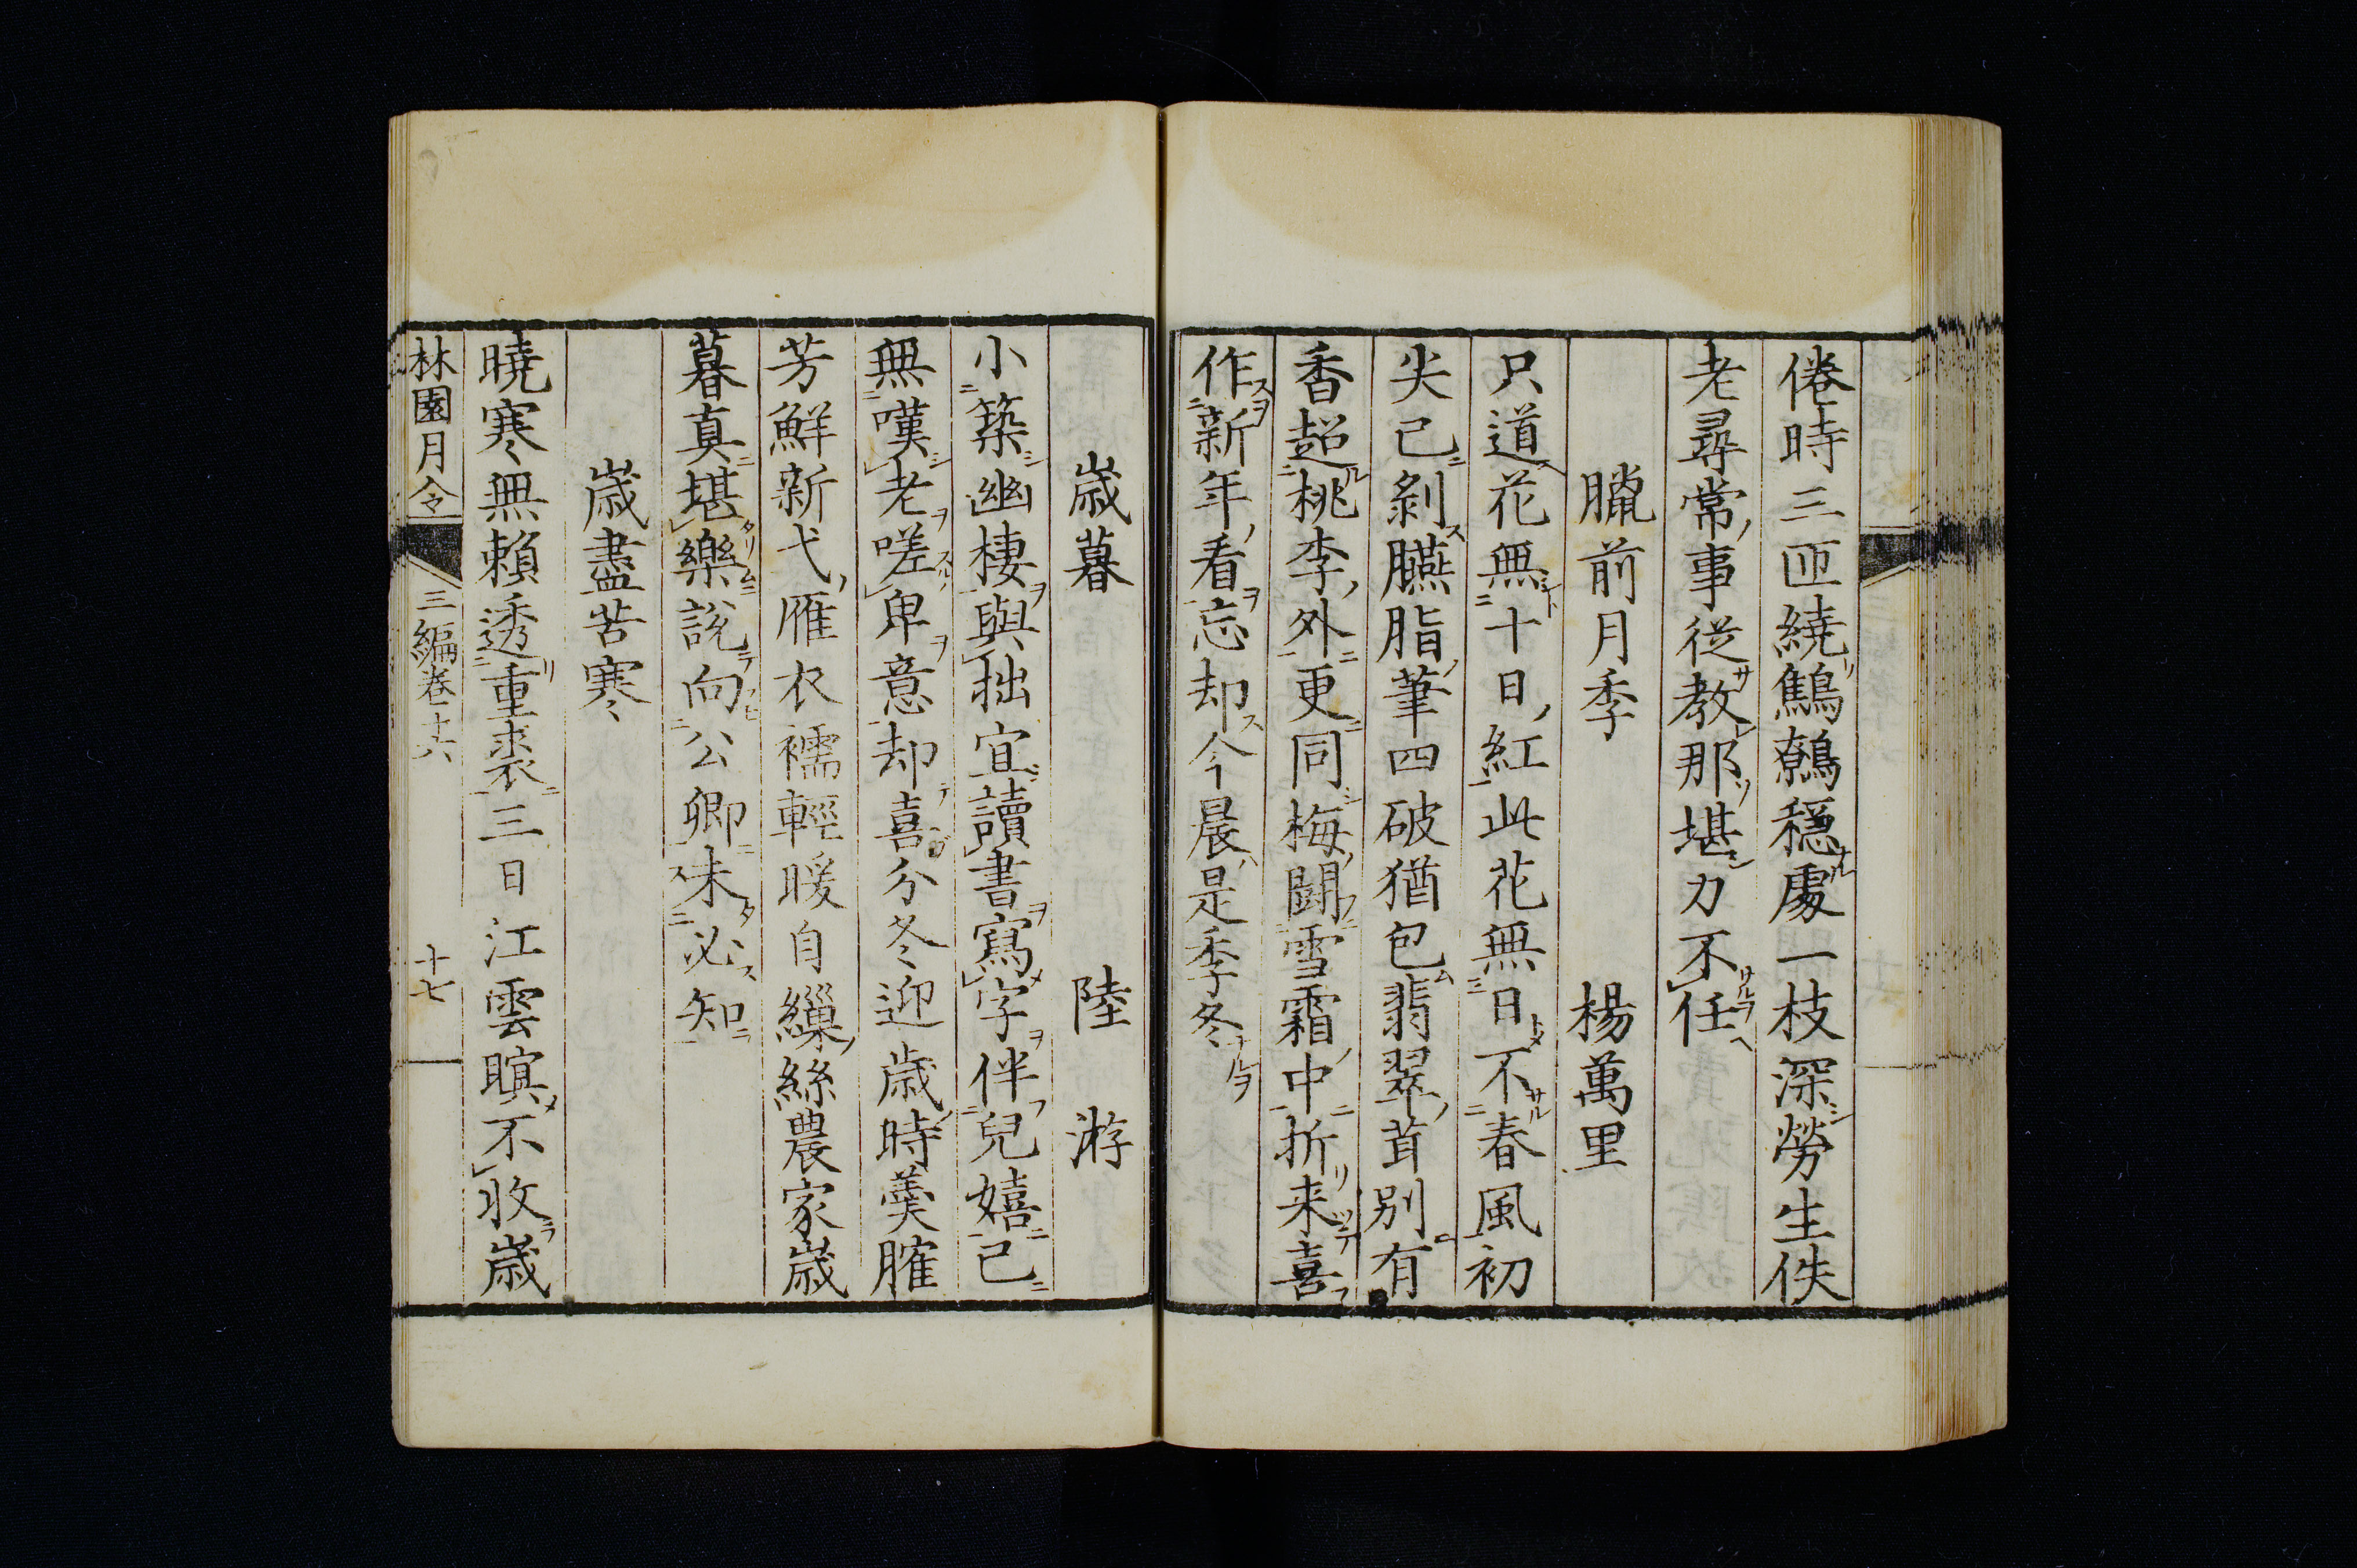 倦時三匝繞鷦鷯穩處一枝深勞生佚
老尋常事從教那堪力不任
臘前月季　楊萬里
只道花無十日紅此花無日不春風初
尖已剝臙脂筆四破猶包翡翠茸別有
香超桃李外更同梅鬪雪霜中折来喜
作新年看忘却今晨是季冬
歳暮　陸游
小築幽棲與拙宜讀書寫字伴兒嬉已
無嘆老嗟卑意却喜分冬迎歳時羮臛
芳鮮新弋雁衣襦輕暖自繅絲農家歳
暮真堪樂說向公卿未必知
歳盡苦寒
曉寒無賴透重裘三日江雲暝不收歳
林園月令　三編卷十六　十七